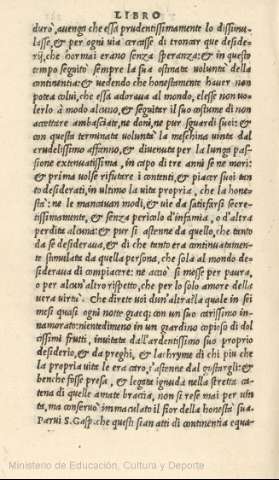 LIBRO
durò, auenga che essa prudentissimamente lo dissimu-
lasse, & per ogni uia cercasse di troncar que deside-
rij, che hormai erano senza speranza: & in questo
tempo seguitò sempre la sua ostinata uoluntà della
continentia: & uedendo che honestamente hauer non
potea colui, che essa adoraua al mondo, elesse non uo-
lerlo à modo alcuno, & seguitar il suo costume di non
accettare ambasciate, ne doni, ne pur sguardi suoi: &
con questa terminata uoluntà la meschina uinta dal
crudelissimo affanno, & diuenuta per la lunga pas-
sione extenuatissima, in capo di tre anni se ne morì:
& prima uolse rifutare i contenti, & piacer suoi tan
to desiderati, in ultimo la uita propria, che la hone-
stà: ne le mancauan modi, & uie da satisfarsi secre-
tissimamente, & senza pericolo d'infamia, o d'altra
perdita alcuna: & pur si astenne da quello, che tanto
da se desideraua, & di che tanto era continuatamen-
te stimulata da quella persona, che sola al mondo de-
sideraua di compiacere: ne acciò si mosse per paura,
o per alcun'altro rispetto, che per lo solo amore della
uera uirtù. Che direte uoi d'un'altra? la quale in sei
mesi quasi ogni notte giacque con un suo carissimo in-
namorato: nientedimeno in un giardino copioso di dol
cissimi frutti, inuitata dall'ardentissimo suo proprio
desiderio, & da preghi, & lachryme di chi piu che
la propria uita le era caro, s'astenne dal gustargli: &
benche fosse presa, & legata ignuda nella stretta ca-
tena di quelle amate braccia, non si rese mai per uin
ta, ma conseruò immaculato il fior della honestà sua.
Parui S. Gasp. che questi sian atti di continentia equa-
Ministerio de Educación, Cultura y Deporte